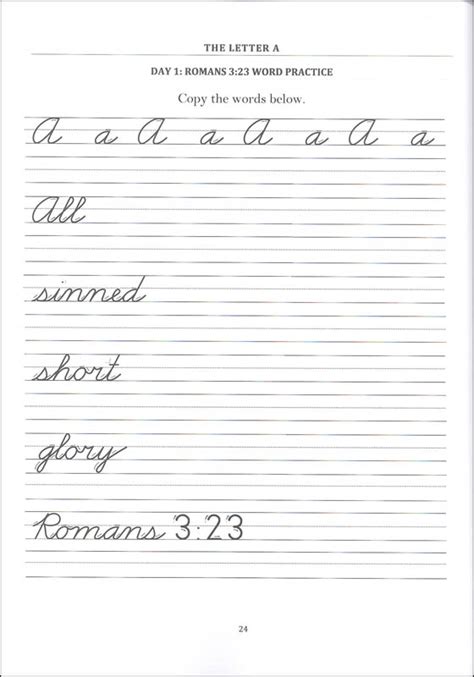 THE LETTER A
DAY 1: ROMANS 3:23 WORD PRACTICE
Copy the words below.
A a A a A a A a
All
sinned
short
glory
Romans 3:23
24